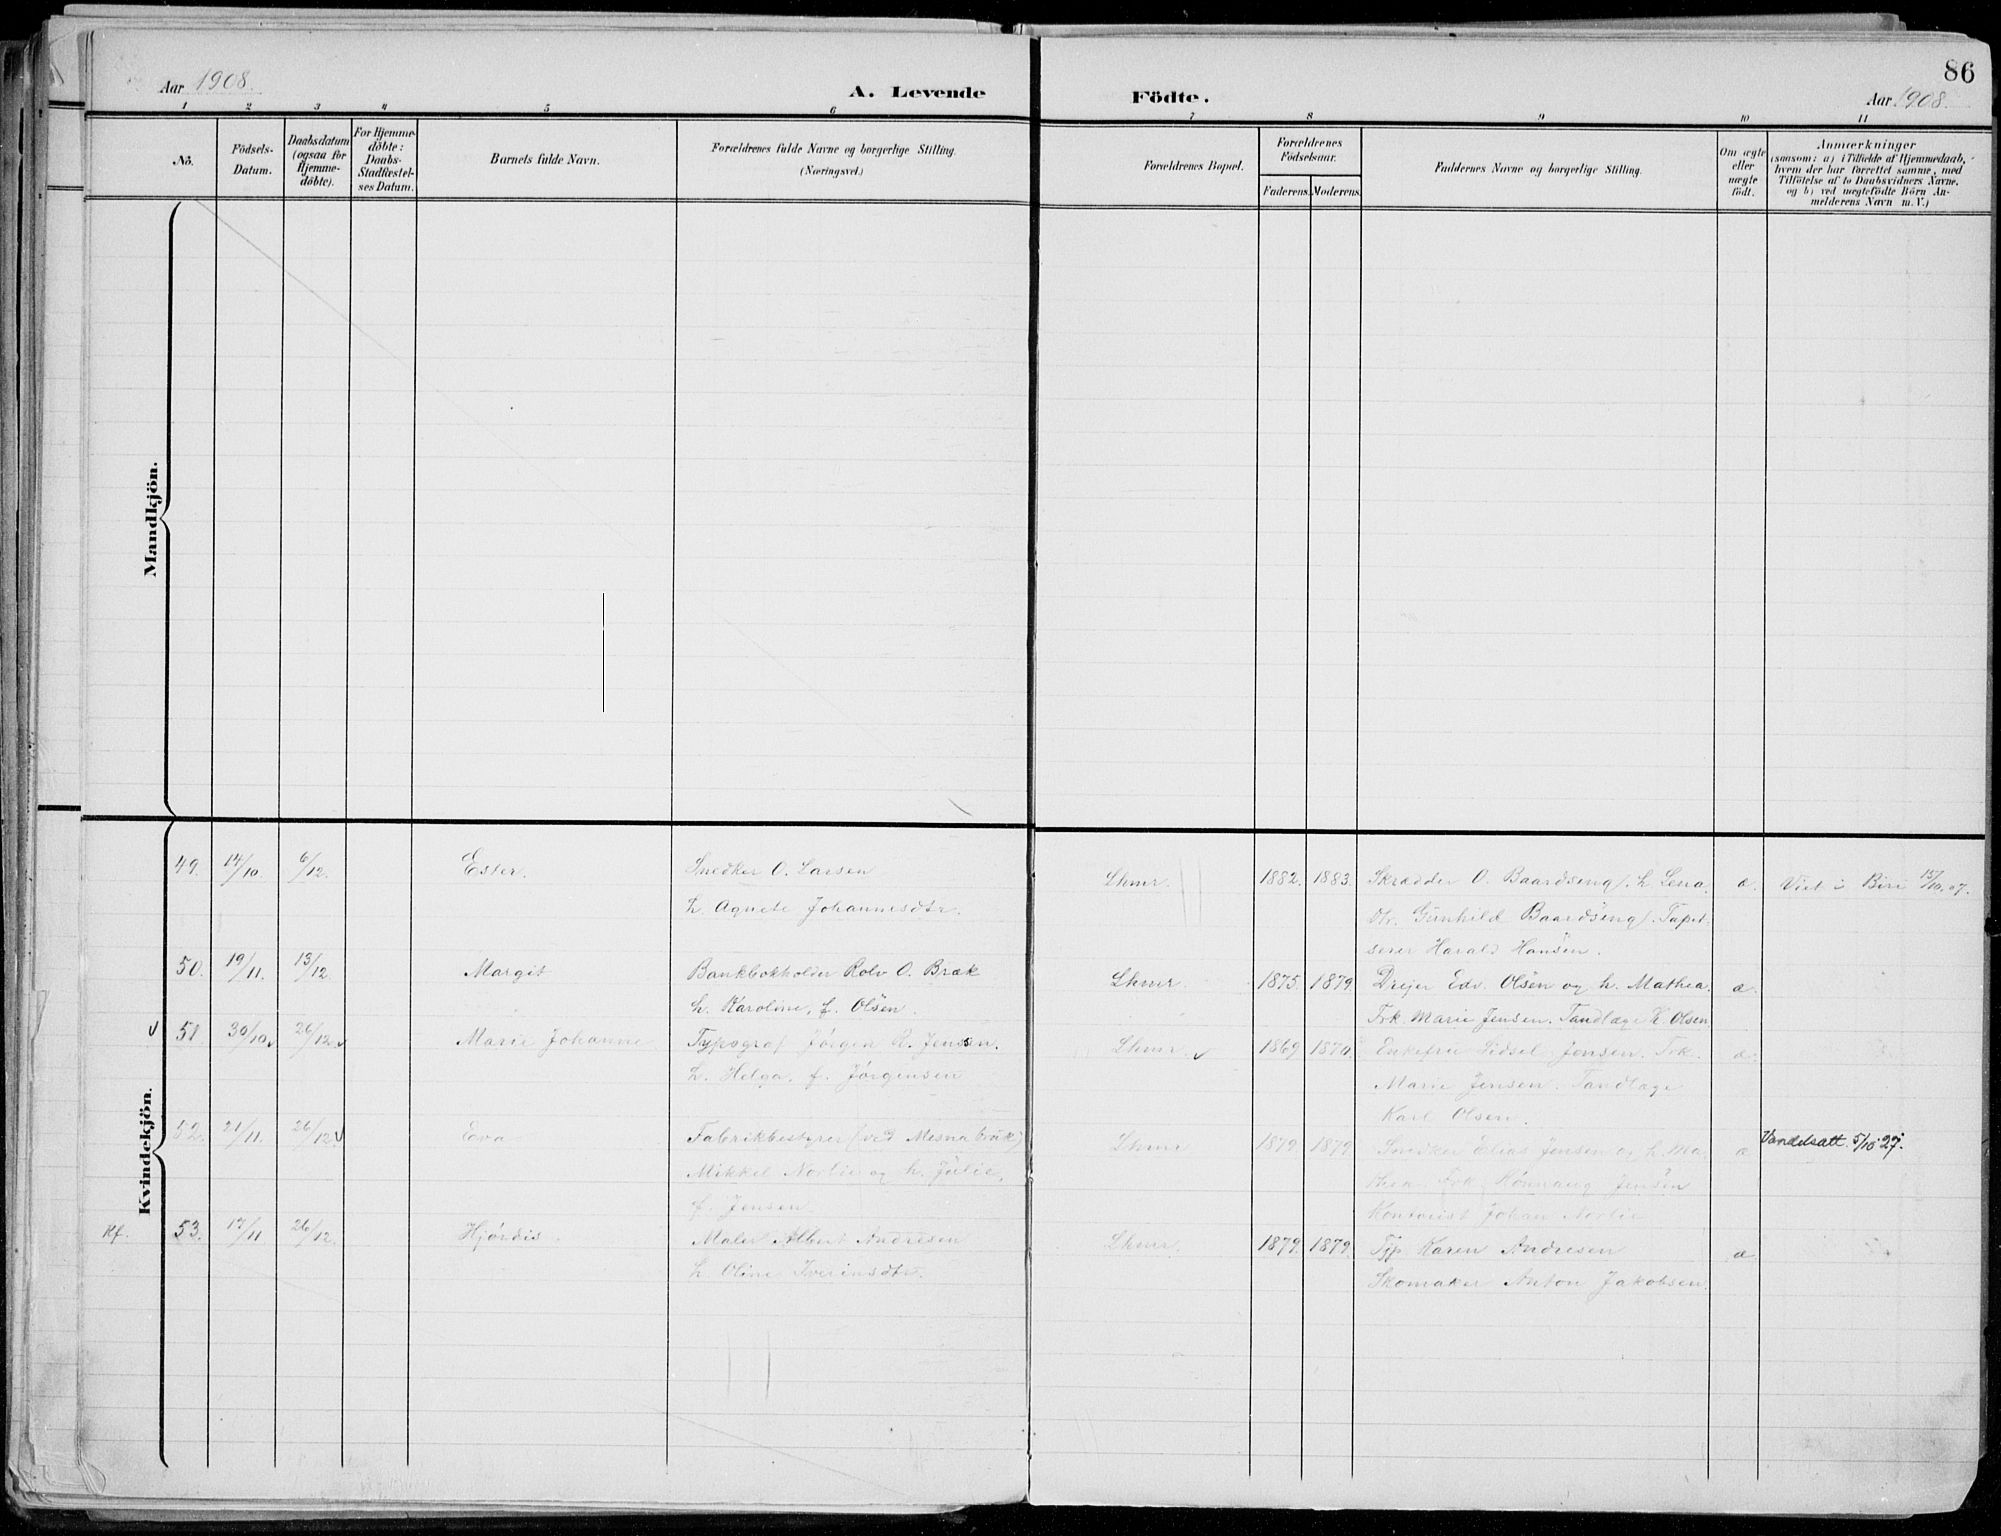 86
Aar 1908.
A. Levende
Födte.
Aar 1908.
1 2 3 4 5 6 7 8 9 10 11
No.
Födsels-
Datum.
Daabsdatum
(ogsaa for
Hjemme-
döbte).
For Hjemme-
döbte:
Daabs-
Stadfæstel-
ses Datum.
Barnets fulde Navn.
Forældrenes fulde Navne og borgerlige Stilling.
(Næringsvei.)
Forældrenes Bopæl.
Forældrenes
Födselsaar.
Faderens. Moderens.
Faddernes Navne og borgerlige Stilling.
Om ægte
eller
uægte
födt.
Anmærkninger
(saasom: a) i Tilfælde af Hjemmedaab,
hvem der har forrettet samme, med
Tilföielse af to Daabsvidners Navne,
og b) ved uægtefödte Börn An-
melderens Navn m. V.)
Mandkjön.
Kvindekjön.
49. 14/10. 6/12. Ester. Snedker O. Larsen Lhmr. 1882. 1883. Skrædder O. Baardseng, h. Lena. æ. Viet i Biri 15/10.07.
h. Agnete Johannesdtr. Gunhild Baardseng, Tapet-
serer Harald Hansen.
50. 19/11. 13/12. Margit Bankbokholder Rolv O. Bræk Lhmr. 1875. 1879. Drejer Edv. Olsen og h. Mathea. æ.
h. Karoline, f. Olsen. Frk. Marie Jensen. Tandlæge K. Olsen
51. 30/10. 26/12. Marie Johanne Typograf Jørgen R. Jenssen. Lhmr. 1869 1870. Enkefru Sidsel Jensen. Frk. æ.
h. Helga, f. Jørgensen Marie Jensen. Tandlæge
Karl Olsen.
52. 21/11. 26/12. Eva Fabrikbestyrer (ved Mesna bruk) Lhmr 1879. 1879. Snedker Elias Jensen og h. Ma- æ Vandelsatt. 5/10 27.
Mikkel Norlie og h. Julie, thea. Frk Rønnaug Jensen
f. Jensen. Kontorist Johan Norlie
Kf. 53. 17/11 26/12. Hjørdis. Maler Albert Andresen Lhmr. 1879. 1879. Karen Andresen æ
h. Oline Iverinsdtr. Skomaker Anton Jakobsen.